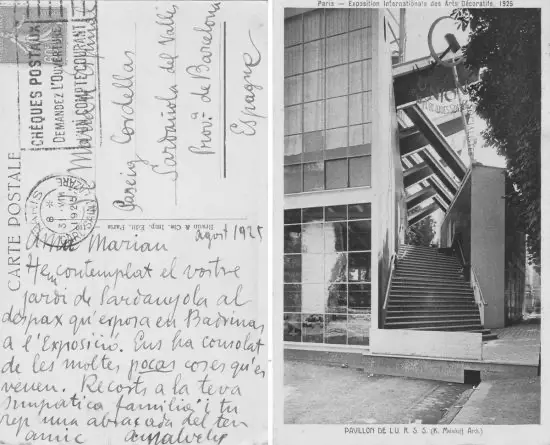 CHÈQUES POSTAUX
DEMANDEZ L'OUVERTURE
D'UN COMPTE COURANT
CARTE POSTALE
Cordellas
Sardañola del Vallés
Provª de Barcelona
Espagne
Braun & Cie, Imp. Edit. Paris
agost 1925
Marian
Hem contemplat el vostre
jardí de Sardanyola al
despax qu'exposa en Badrinas
a l'Exposició. Ens ha consolat
de les moltes pocas coses qu'es
veuen. Recorts a la teva
simpatica familia i tu
rep una abraçada del teu
amic
Paris — Exposition Internationale des Arts Décoratifs, 1925
PAVILLON DE L'U. R. S. S. (K. Melnikoff Arch.)